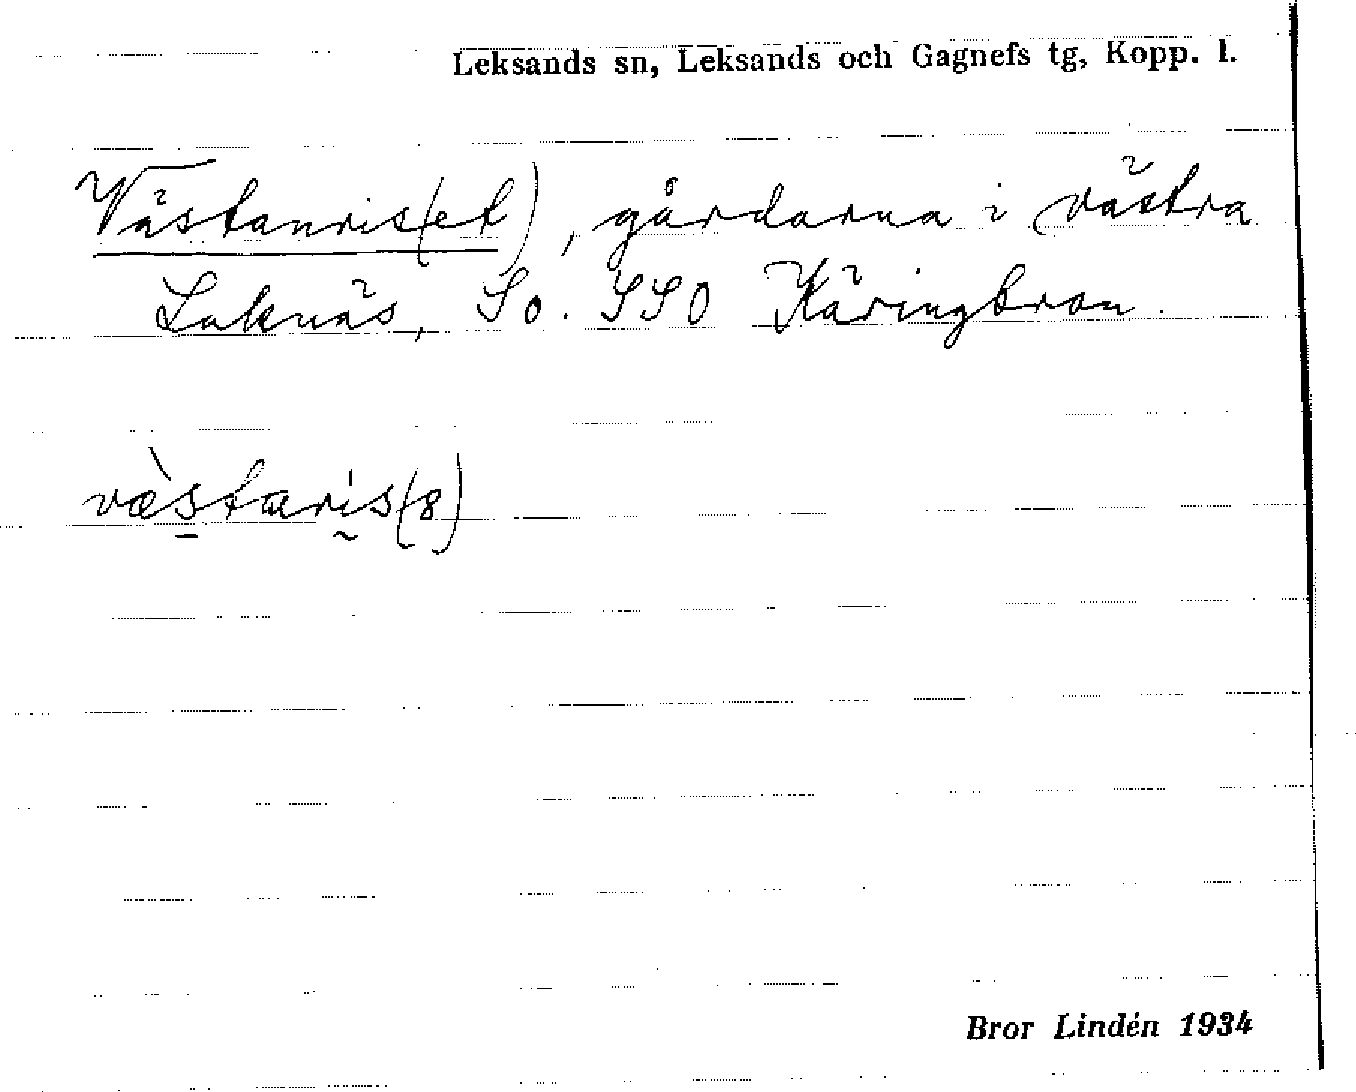 Leksands sn, Leksands och Gagnefs tg, Kopp. l.
Västanris(et), gårdarna i västra
Laknäs, So. SSO Käringbron.
væ̀staris(8)
Bror Lindén 1934